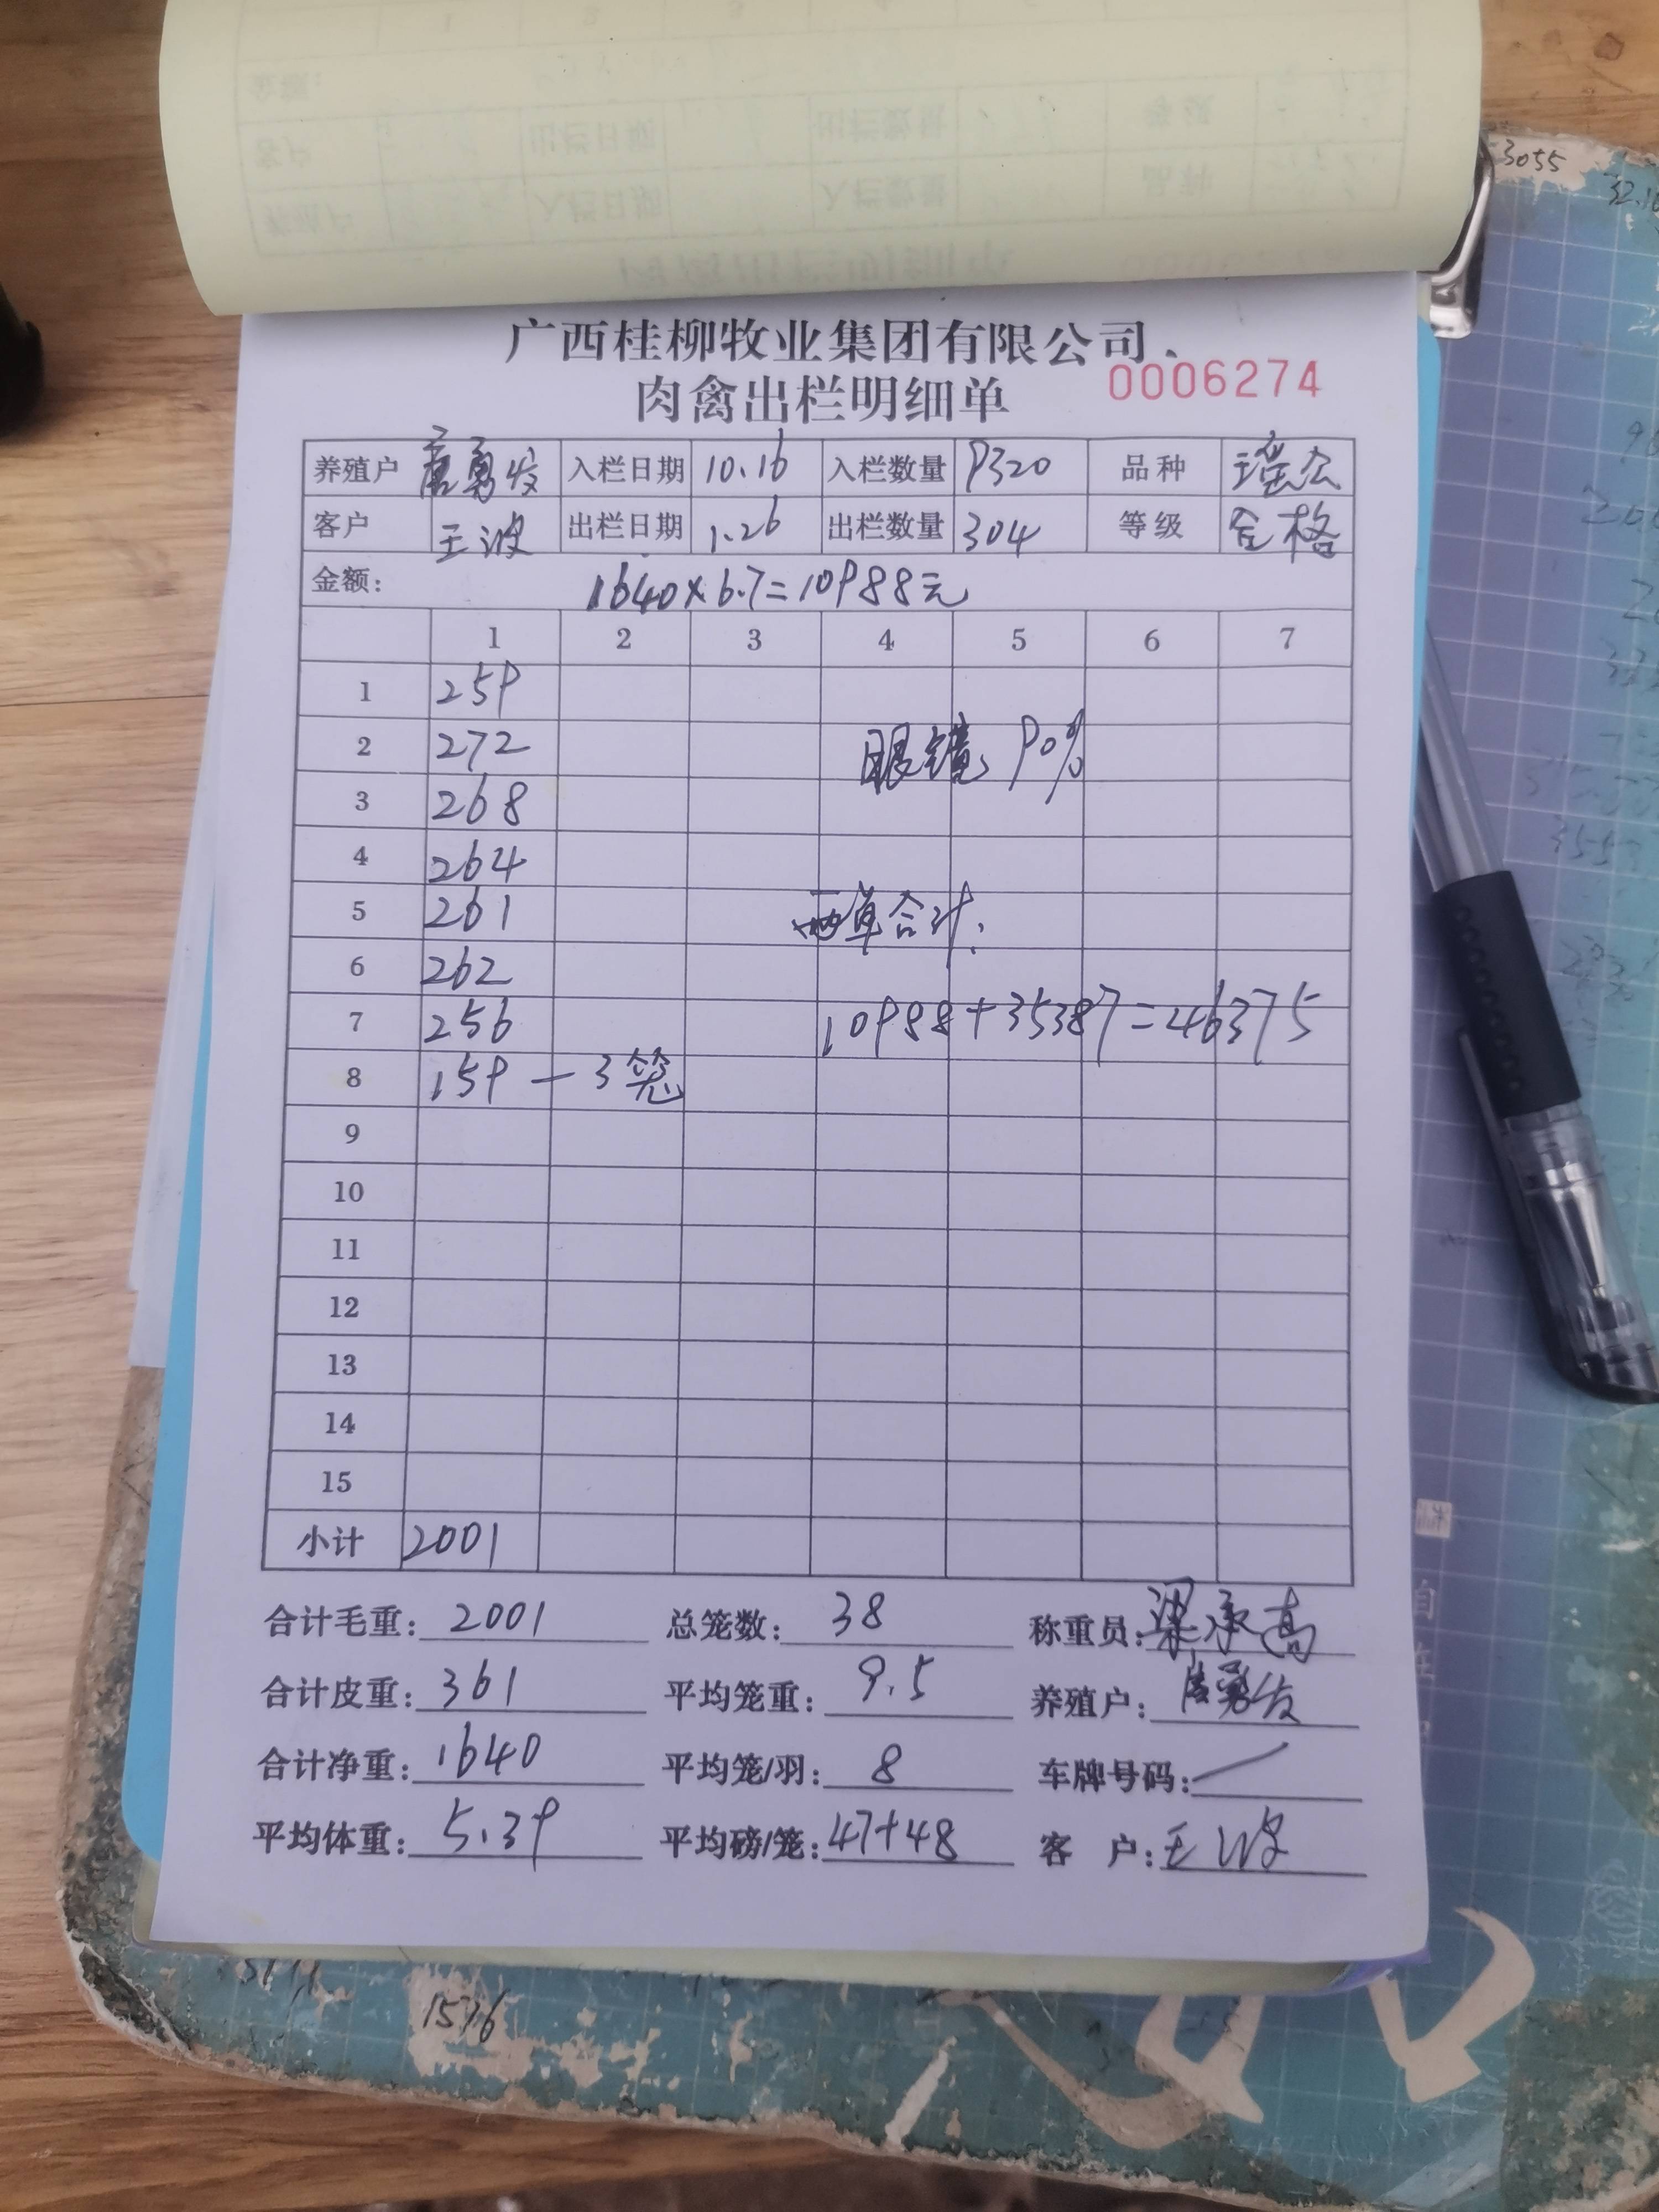 广西桂柳牧业集团有限公司
肉禽出栏明细单 0006274
养殖户 唐勇发 入栏日期 10.16 入栏数量 9320 品种 瑶公
客户 王波 出栏日期 1.26 出栏数量 304 等级 合格
金额： 1640×6.7=10988元
1 2 3 4 5 6 7
1 259
2 272 眼镜 90%
3 268
4 264
5 261 两单合计:
6 262
7 256 10988+35387=46375
8 159 — 3笼
9
10
11
12
13
14
15
小计 2001
合计毛重: 2001 总笼数: 38 称重员: 梁承高
合计皮重: 361 平均笼重: 9.5 养殖户: 唐勇发
合计净重: 1640 平均笼/羽: 8 车牌号码: /
平均体重: 5.39 平均磅/笼: 47+48 客 户: 王波
3055
1576